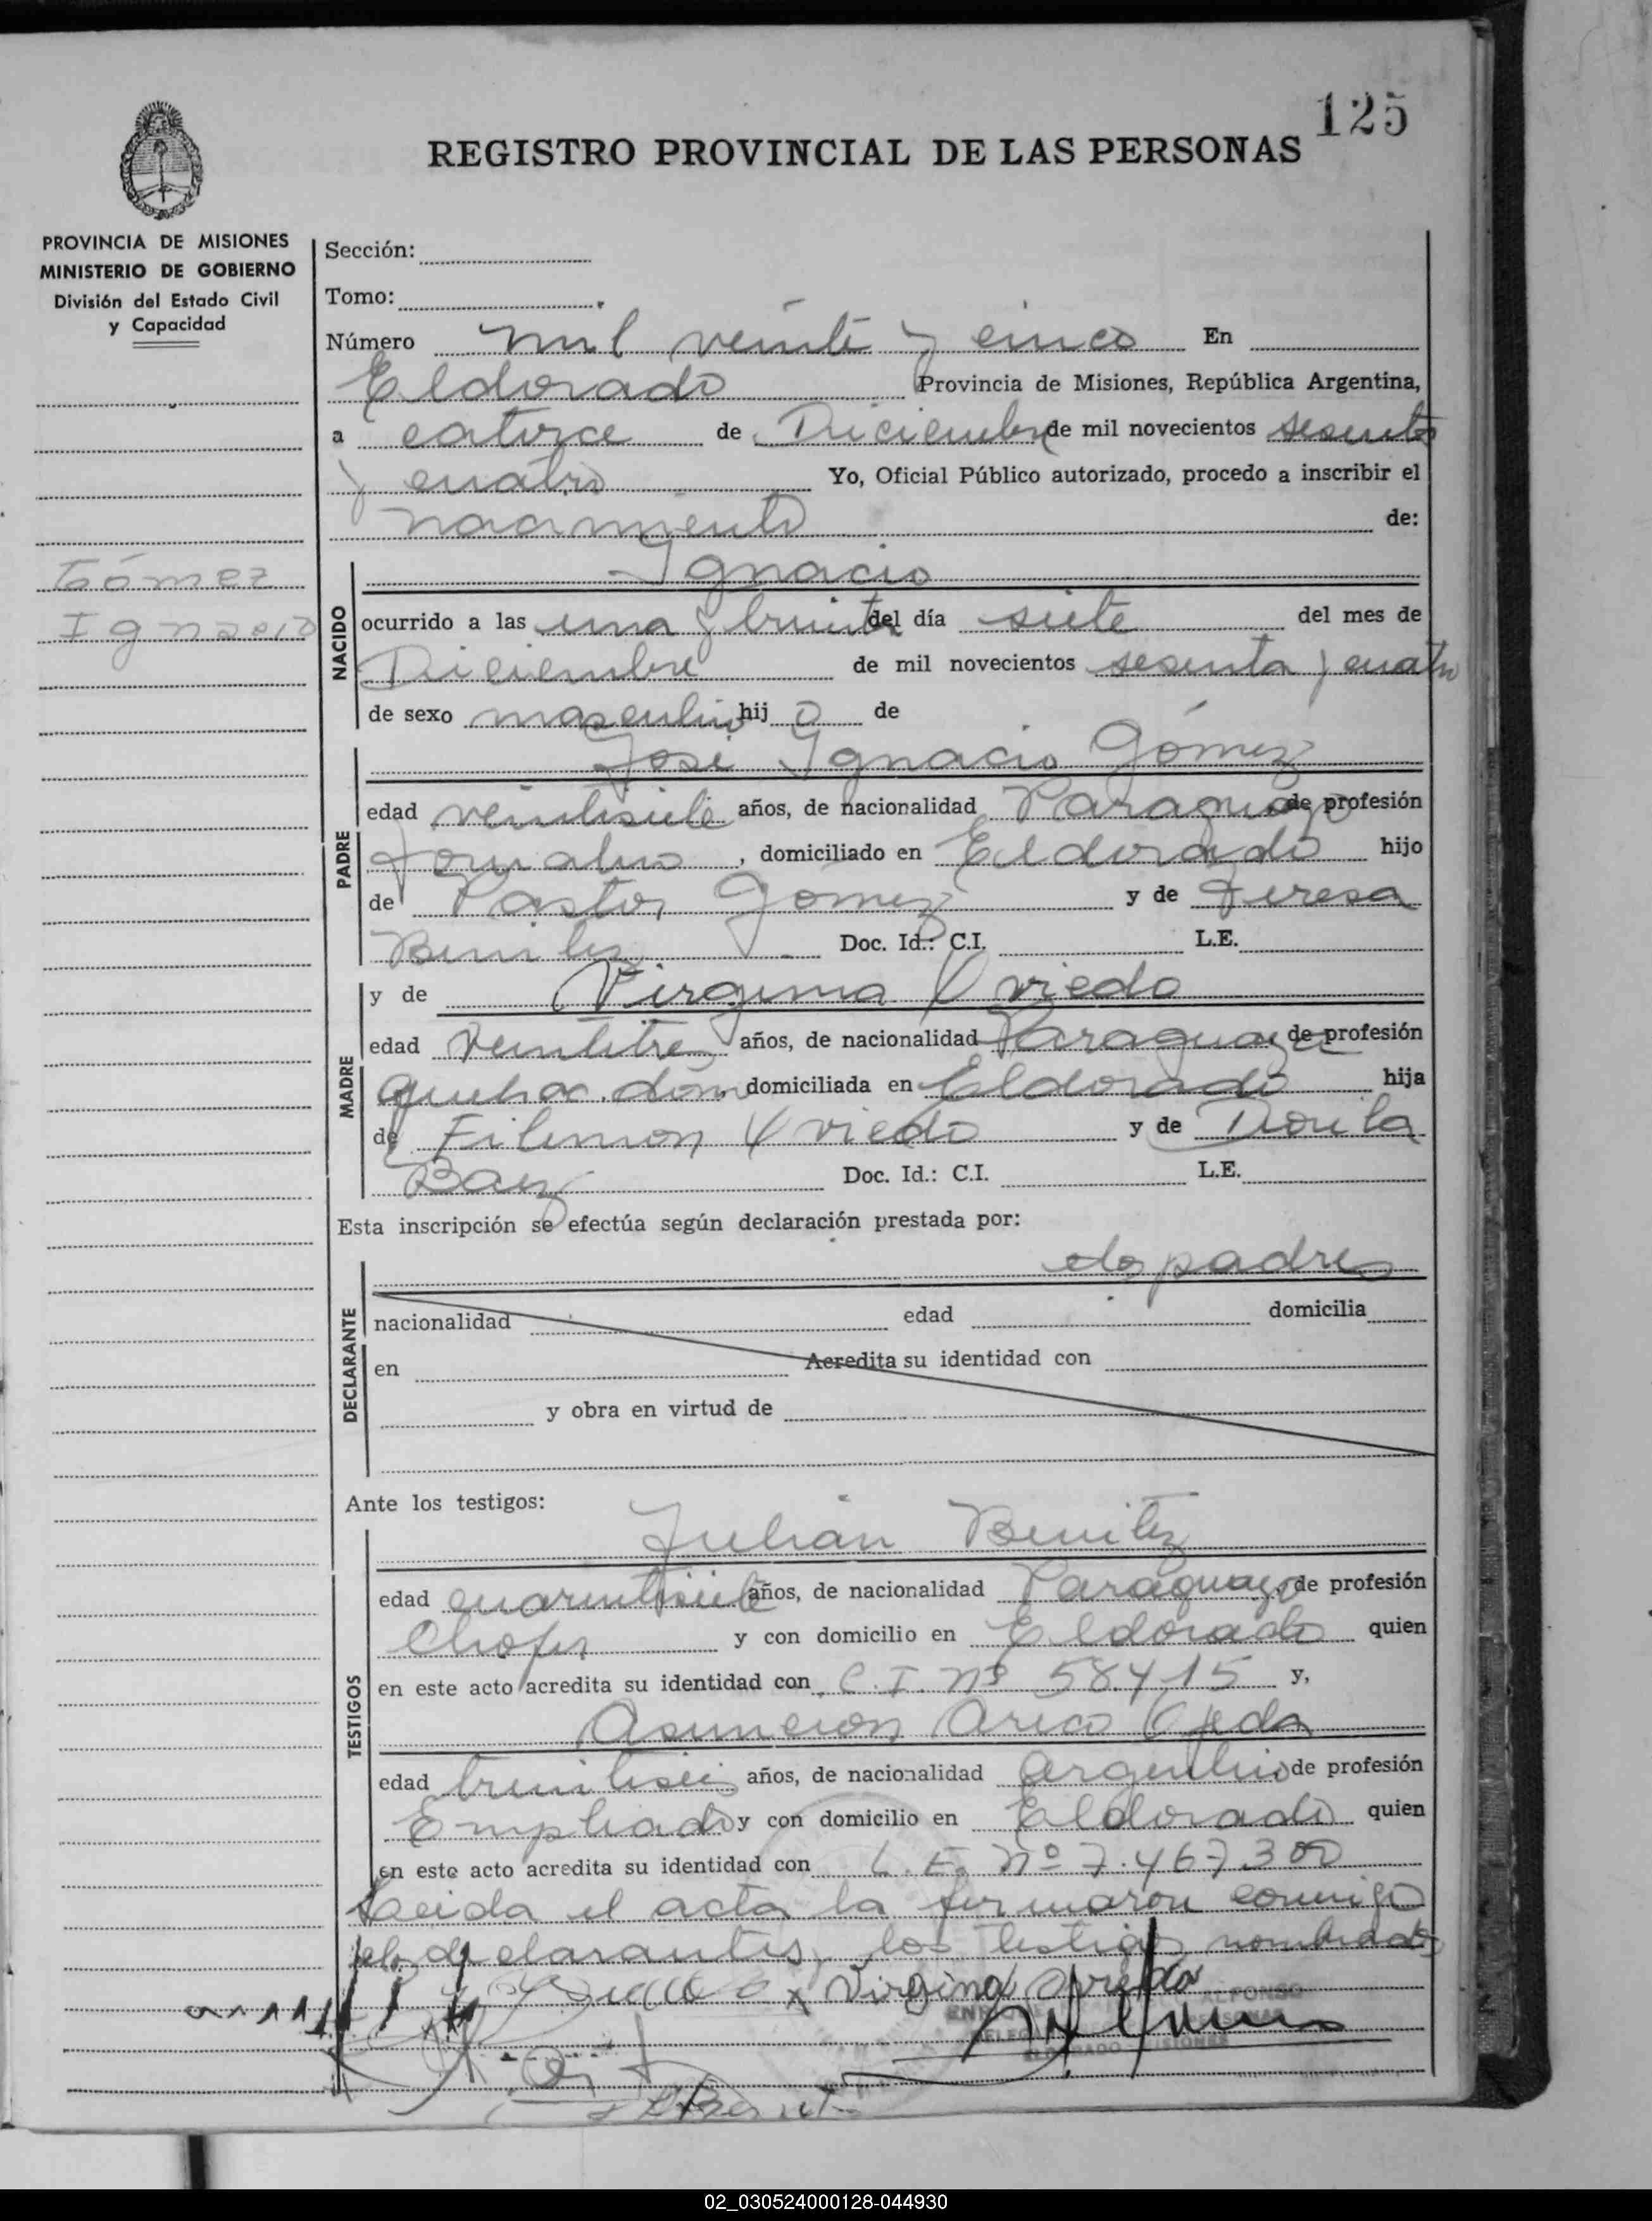 125
REGISTRO PROVINCIAL DE LAS PERSONAS
PROVINCIA DE MISIONES
MINISTERIO DE GOBIERNO
División del Estado Civil
y Capacidad
Gómez
Ignacio
Sección:
Tomo:
Número mil veinte y cinco En
Eldorado Provincia de Misiones, República Argentina,
a catorce de Diciembre de mil novecientos sesenta
y cuatro Yo, Oficial Público autorizado, procedo a inscribir el
nacimiento de:
NACIDO
Ignacio
ocurrido a las una y treinta del día siete del mes de
Diciembre de mil novecientos sesenta y cuatro
de sexo masculino hij o de
PADRE
José Ignacio Gómez
edad veintisiete años, de nacionalidad Paraguayo de profesión
Jornalero, domiciliado en Eldorado hijo
de Pastor Gomez y de Teresa
Benitez Doc. Id.: C.I. L.E.
MADRE
y de Virginia Oviedo
edad veintitres años, de nacionalidad Paraguaya de profesión
quehac. dom. domiciliada en Eldorado hija
de Filemon Oviedo y de
Baez Doc. Id.: C.I. L.E.
Esta inscripción se efectúa según declaración prestada por:
DECLARANTE
padres
nacionalidad edad domicilia
en Acredita su identidad con
y obra en virtud de
Ante los testigos:
TESTIGOS
Julián Benitez
edad cuarentisiete años, de nacionalidad Paraguayo, de profesión
Chofer y con domicilio en Eldorado quien
en este acto acredita su identidad con C.I. nº 58415 y,
Asuncion Ojeda
edad treintiseis años, de nacionalidad argentino de profesión
Empleado y con domicilio en Eldorado quien
en este acto acredita su identidad con L.E. nº 7.467.300
Leida el acta la firmaron conmigo
declarantes, los testigos nombrados
x Virgina Oviedo
ALFONSO
02_030524000128-044930